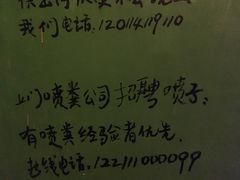 我们电话:12014119110
上门喷粪公司招聘喷手:
有喷粪经验者优先.
热线电话:12211000099